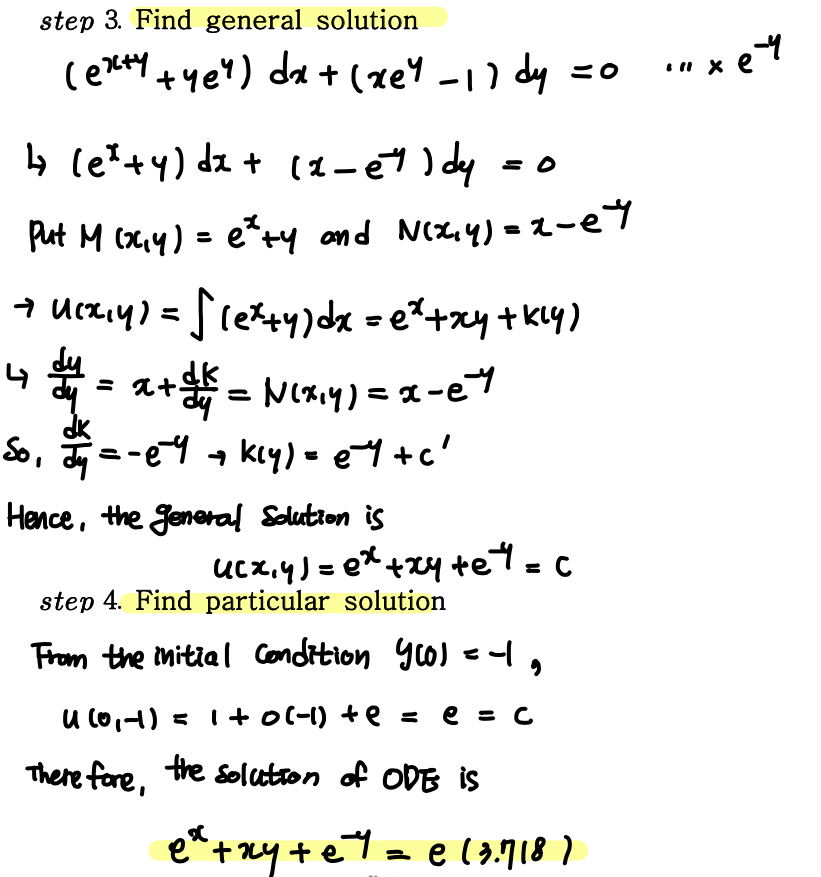 step 3. Find general solution
(e^{x+y} + ye^y) dx + (xe^y - 1) dy = 0 ... × e^{-y}
↳ (e^x + y) dx + (x - e^{-y}) dy = 0
Put M(x,y) = e^x + y and N(x,y) = x - e^{-y}
→ u(x,y) = ∫(e^x + y)dx = e^x + xy + k(y)
↳ du/dy = x + dk/dy = N(x,y) = x - e^{-y}
So, dk/dy = -e^{-y} → k(y) = e^{-y} + c'
Hence, the general solution is
u(x,y) = e^x + xy + e^{-y} = c
step 4. Find particular solution
From the initial condition y(0) = -1,
u(0,-1) = 1 + 0(-1) + e = e = c
Therefore, the solution of ODE is
e^x + xy + e^{-y} = e (3.718)